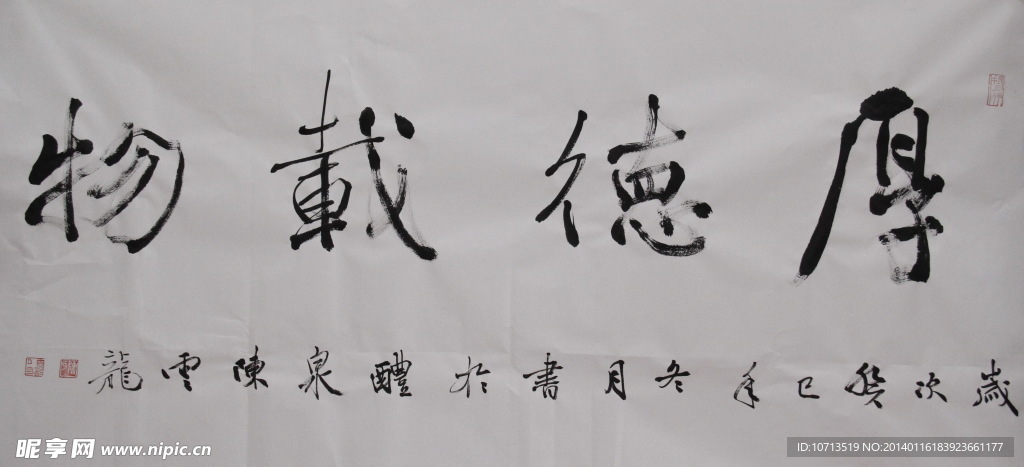 厚德載物
歲次癸巳年冬月書於醴泉陳雲龍
昵享网 www.nipic.cn
ID:10713519 NO:20140116183923661177